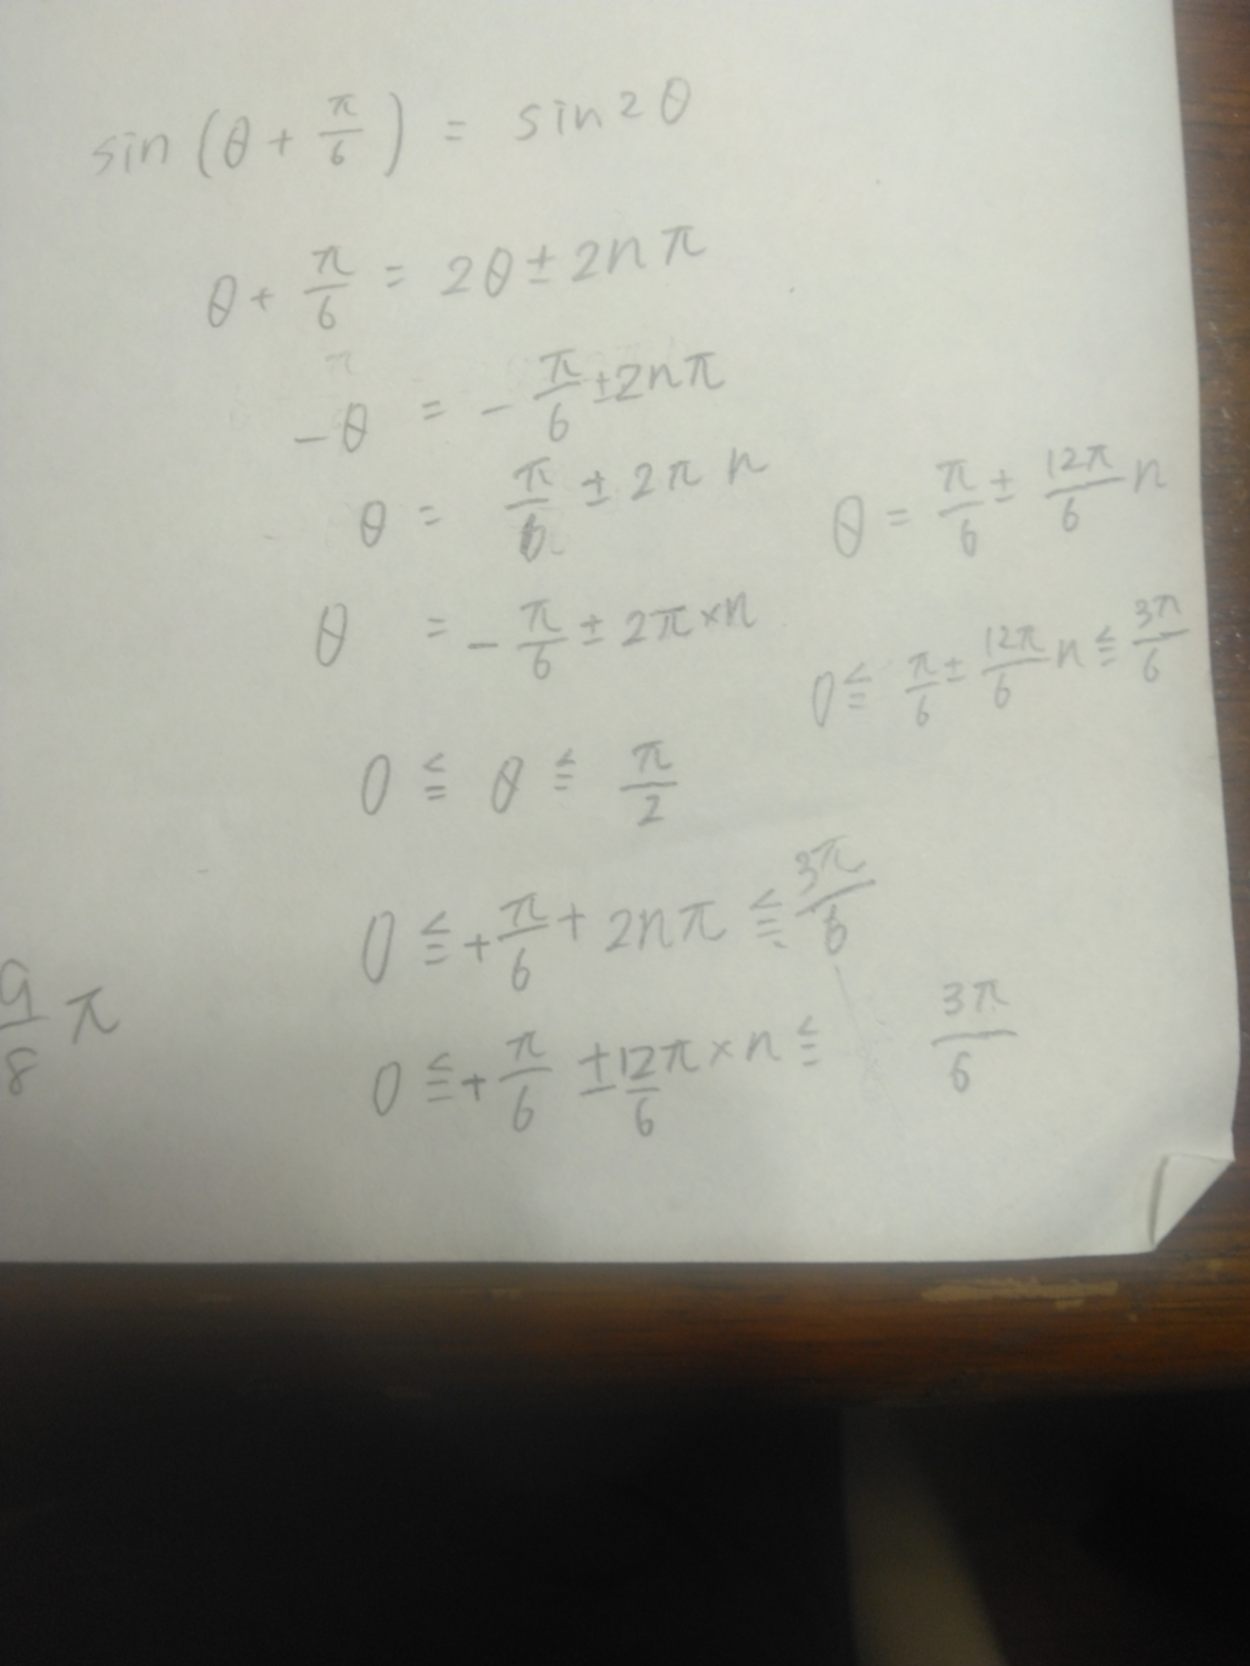 sin (θ + π/6) = sin 2θ
θ + π/6 = 2θ ± 2nπ
π
-θ = -π/6 ± 2nπ
θ = π/6 ± 2π n
θ = π/6 ± 12π/6 n
θ = -π/6 ± 2π × n
0 ≦ π/6 ± 12π/6 n ≦ 3π/6
0 ≦ θ ≦ π/2
0 ≦ + π/6 + 2nπ ≦ 3π/6
9/8 π
0 ≦ + π/6 ± 12π/6 × n ≦ 3π/6